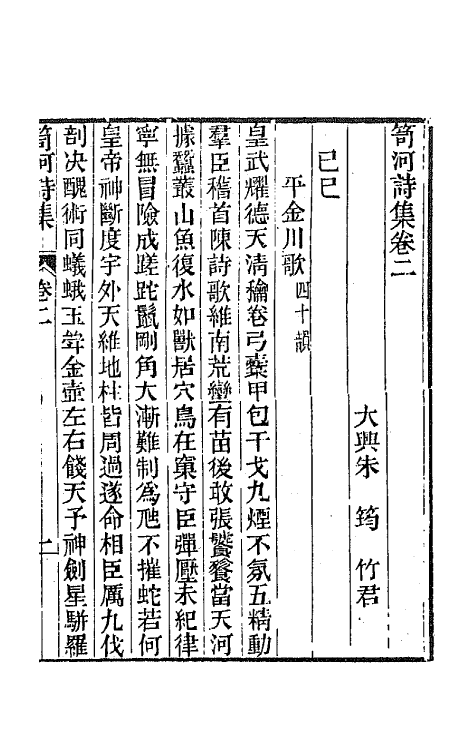 笥河詩集卷二
大興朱 筠 竹君
己巳
平金川歌四十韻
皇武燿德天清穐卷弓櫜甲包干戈九煙不氛五精動
羣臣稽首陳詩歌維南荒蠻有苗後敢張饕餮當天河
據蠶叢山魚復水如獸居穴鳥在窠守臣彈壓未紀律
寧無冒險成蹉跎鬣剛角大漸難制為虺不摧蛇若何
皇帝神斷度宇外天維地柱皆周過遂命相臣厲九伐
剖决醜術同蟻蛾玉斝金壺左右餞天予神劍星駢羅
笥河詩集
卷二
一